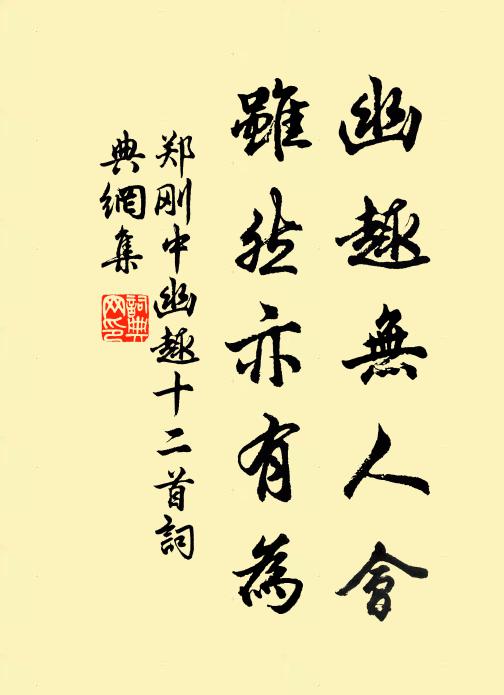 幽趣無人會
雖然亦有為
郑刚中幽趣十二首詞
典網集
詞典网印